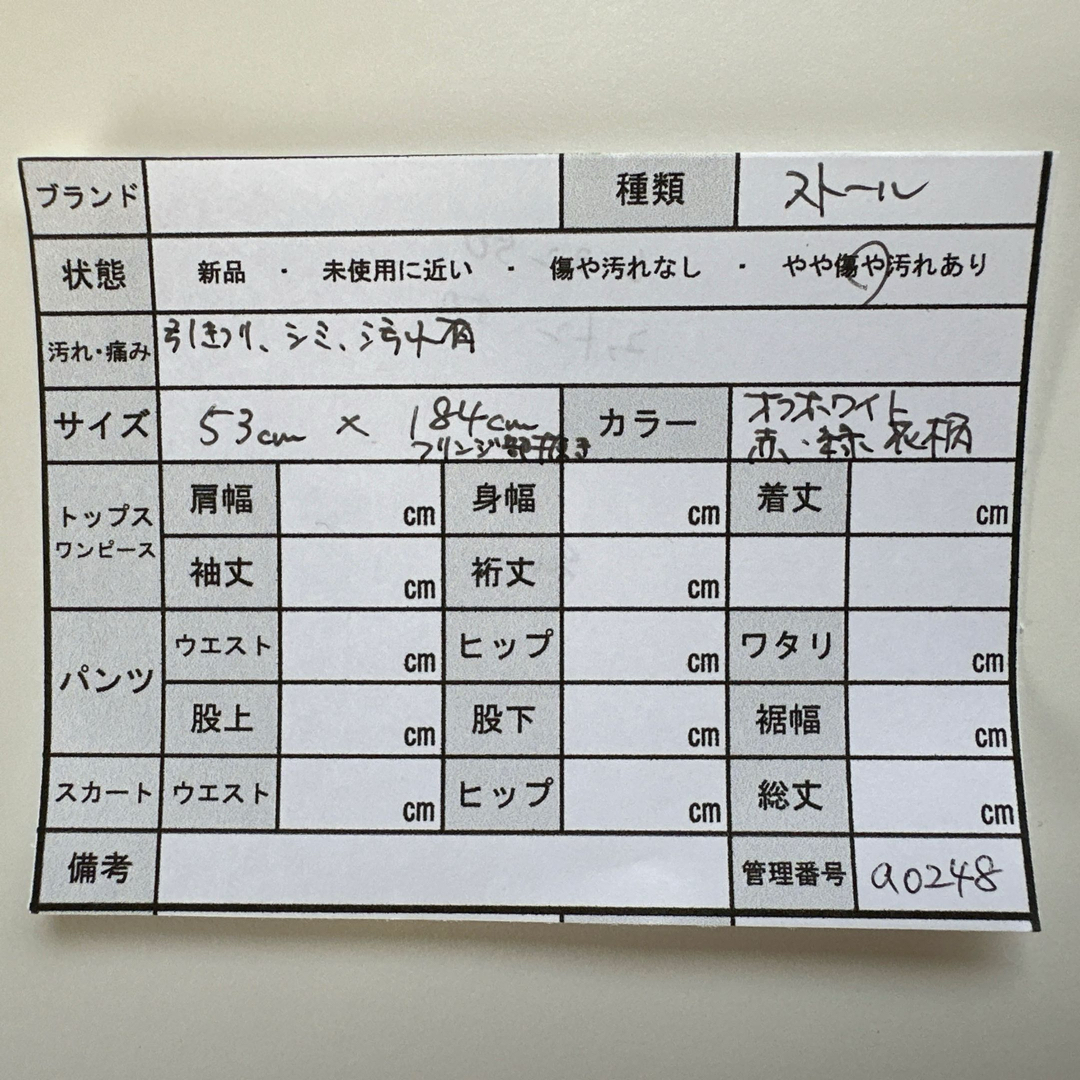 ブランド 種類 ストール
状態 新品 ・ 未使用に近い ・ 傷や汚れなし ・ やや傷や汚れあり
汚れ・痛み 引きつり、シミ、汚れ有
サイズ 53cm × 184cm カラー オフホワイト
フリンジ部抜き 赤、緑 花柄
トップス ワンピース 肩幅 cm 身幅 cm 着丈 cm
袖丈 cm 裄丈 cm
パンツ ウエスト cm ヒップ cm ワタリ cm
股上 cm 股下 cm 裾幅 cm
スカート ウエスト cm ヒップ cm 総丈 cm
備考 管理番号 a0248